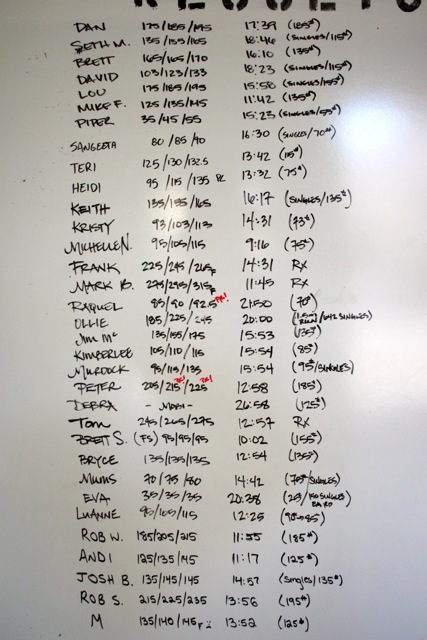 DAN 175/185/195 17:39 (185#)
SETH M. 135/155/165 18:46 (SINGLES/115#)
BRETT 165/165/170 16:10 (135#)
DAVID 103/123/133 18:23 (SINGLES/115#)
LOU 175/185/195 15:58 (SINGLES/155#)
MIKE F. 125/135/145 11:42 (135#)
PIPER 35/45/55 15:23 (SINGLES/55#)
SANGEETA 80/85/90 16:30 (SINGLES/70#)
TERI 125/130/132.5 13:42 (115#)
HEIDI 95/115/135 13:32 (75#)
KEITH 135/155/165 16:17 (SINGLES/135#)
KRISTY 93/103/113 14:31 (73#)
MICHELLE N. 95/105/115 9:16 (75#)
FRANK 225/245/265F 14:31 RX
MARK B. 275/295/315F 11:45 RX
RAQUEL 85/90/92.5 PR! 21:50 (70#)
OLLIE 185/225/245 20:00
JIM Mc 135/155/175 15:53 (135#)
KIMBERLEE 105/110/115 15:54 (85#)
MURDOCK 95/115/135 15:54 (95#/SINGLES)
PETER 205/215 PR!/225 PR! 12:58 (185#)
DEBRA - MOBI - 26:58 (125#)
TOM 245/265/275 12:57 RX
BRETT S. (FS) 95/95/95 10:02 (155#)
BRYCE 135/135/135 12:54 (135#)
MUMS 70/75/80 14:42 (75#/SINGLES)
EVA 35/35/35 20:38
LUANNE 95/105/115 12:25
ROB W. 185/205/215 11:55 (185#)
ANDI 125/135/145 11:17 (125#)
JOSH B. 135/145/145 14:57 (Singles/135#)
ROB S. 215/225/235 13:56 (195#)
M 135/140/145F 13:52 (125#)